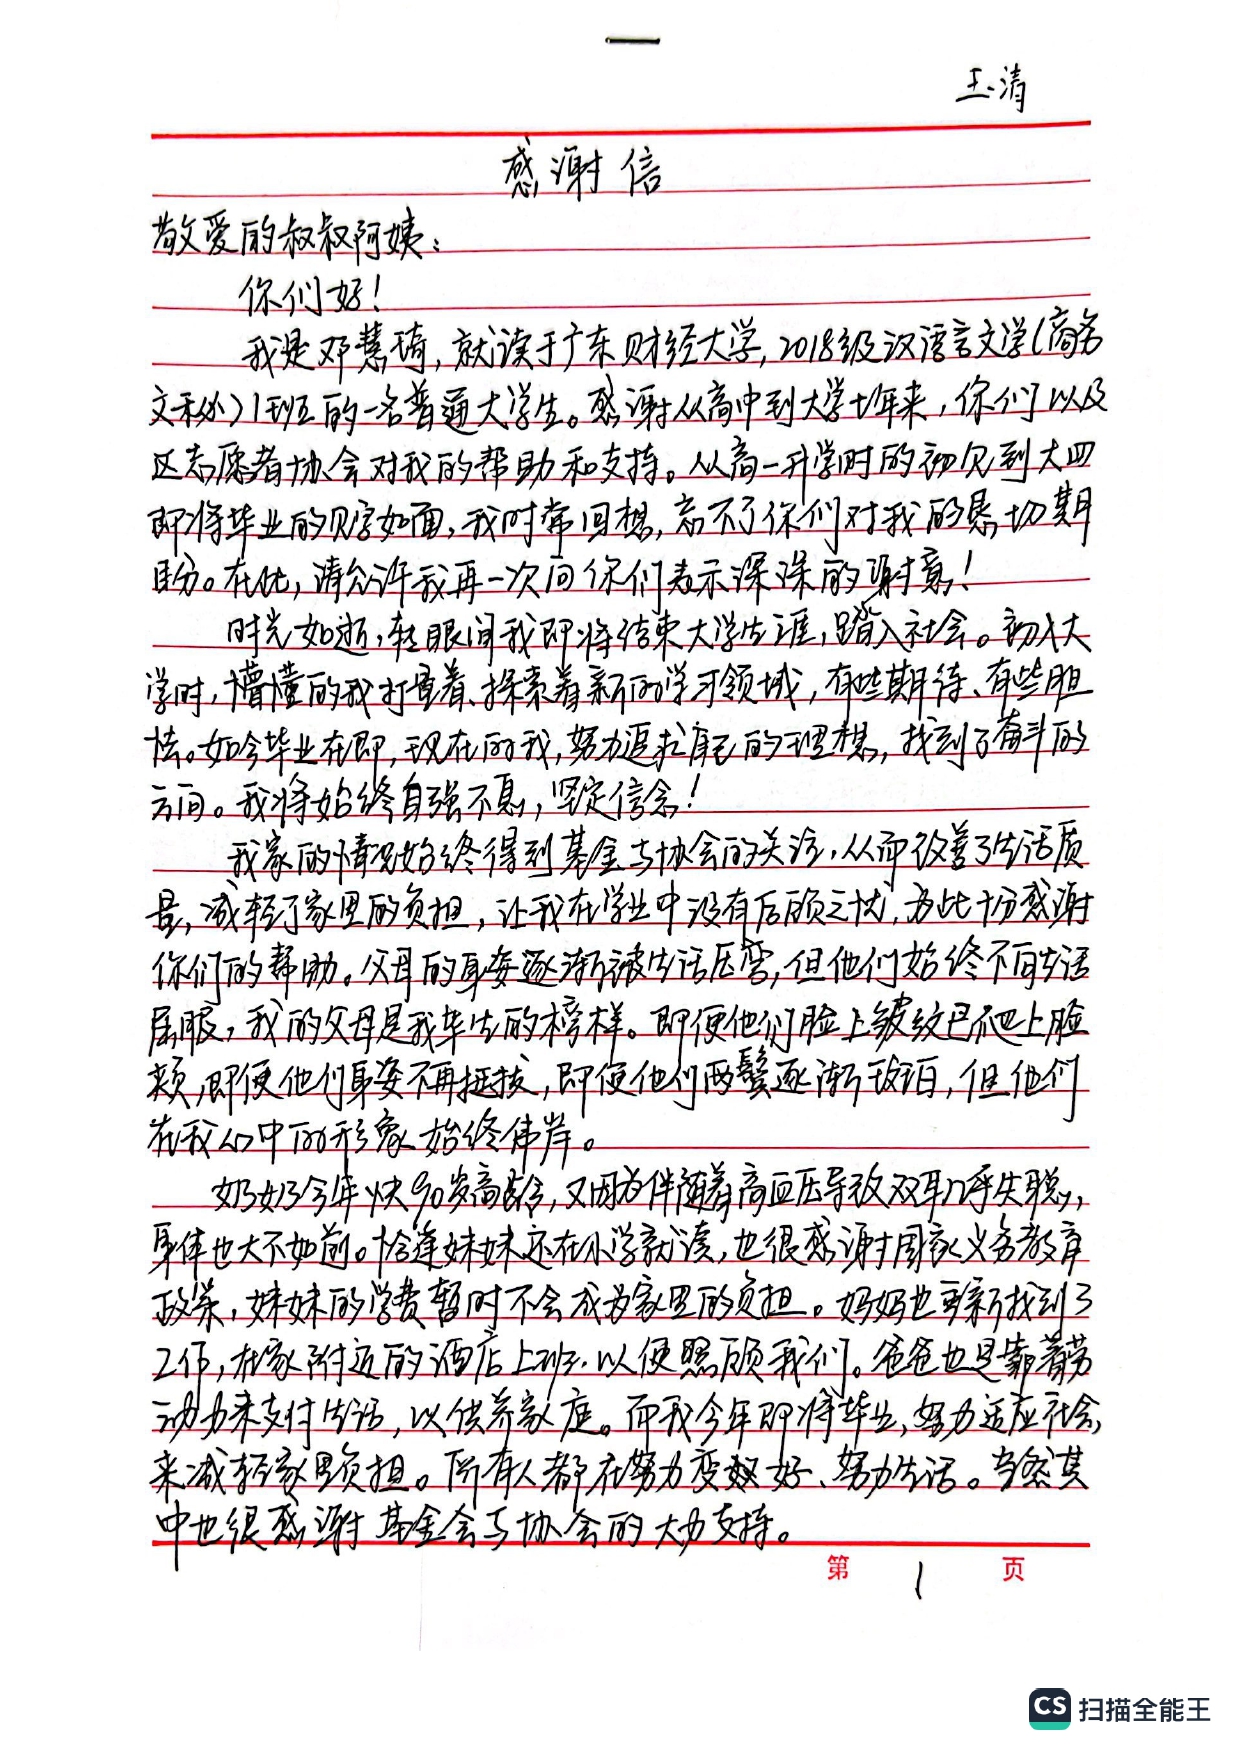 玉清
感谢信
敬爱的叔叔阿姨：
你们好！
我是邓慧琦，就读于广东财经大学，2018级汉语言文学（商务
文秘）1班的一名普通大学生。感谢从高中到大学七年来，你们以及
达志愿者协会对我的帮助和支持。从高一升学时的初见到大四
即将毕业的见字如面，我时常回想，忘不了你们对我的恳切期
盼。在此，请允许我再一次向你们表示深深的谢意！
时光如逝，转眼间我即将结束大学生涯，踏入社会。初入大
学时，懵懂的我打量着、探索着新的学习领域，有些期待、有些胆
怯。如今毕业在即，现在的我，努力追求自己的理想，找到了奋斗的
方向。我将始终自强不息，坚定信念！
我家的情况始终得到基金与协会的关注，从而改善了生活质
量，减轻了家里的负担，让我在学业中没有后顾之忧，为此十分感谢
你们的帮助。父母的身姿逐渐被生活压弯，但他们始终不向生活
屈服，我的父母是我毕生的榜样。即便他们脸上皱纹已爬上脸
颊，即便他们身姿不再挺拔，即便他们两鬓逐渐斑白，但他们
在我心中的形象始终伟岸。
奶奶今年快90岁高龄，又因为伴随着高血压导致双耳几乎失聪，
身体也大不如前。恰逢妹妹还在小学就读，也很感谢国家义务教育
政策，妹妹的学费暂时不会成为家里的负担。妈妈也重新找到了
工作，在家附近的酒店上班，以便照顾我们。爸爸也是靠着劳
动力来支付生活，以供养家庭。而我今年即将毕业，努力适应社会，
来减轻家里负担。所有人都在努力变好、努力生活。当然其
中也很感谢基金会与协会的大力支持。
第 1 页
CS 扫描全能王